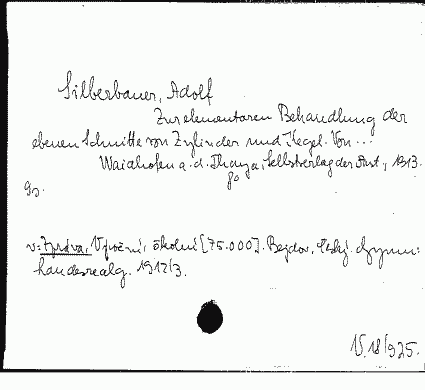 Silberbauer, Adolf
Zur elementaren Behandlung der
ebenen Schnitte von Zylinder und Kegel. Von ...
Waidhofen a. d. Thaya, Selbstverlag der Anst., 1913.
8°
9 s.
v: Zpráva, Výroční, školní [75.000]. Bejdov, Český. Gymn:
Landesrealg. 1912/3.
V. 18/925.